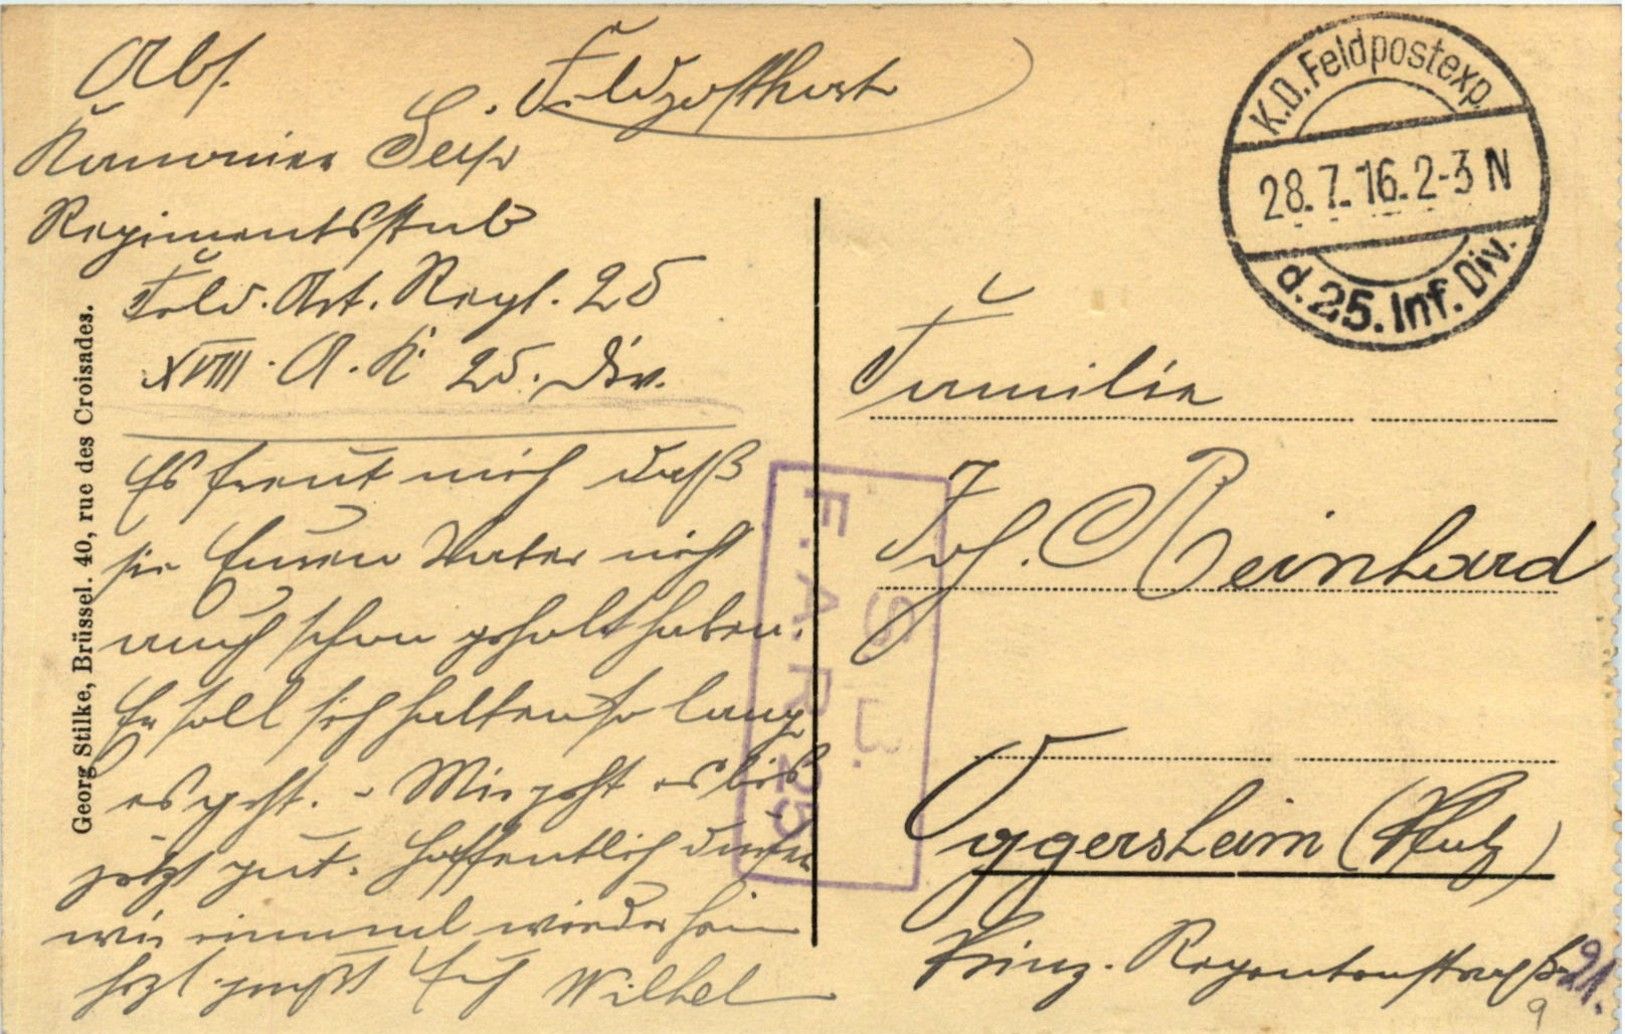 Feldpostkarte
Abs.
Kanonier Seip
Regimentsstab
Feld. Art. Regt. 25
XVIII. A. K 25. Div.
Es freut mich daß
sie Euren Vater nicht
auch schon geholt haben.
Er soll sich halten so lange
es geht. - Mir geht es bis
jetzt gut. Hoffentlich dürfen
wir einmal wieder heim
Hzl grüßt Euch Wilhel
Georg Stilke, Brüssel. 40, rue des Croisades.
K.D.Feldpostexp.
28.7.16.2-3N
d.25.Inf.Div.
S. B.
F.A.R. 25
Familie
Joh. Reinhard
Oggersheim (Pfalz)
Prinz-Regentenstraße 21.
9